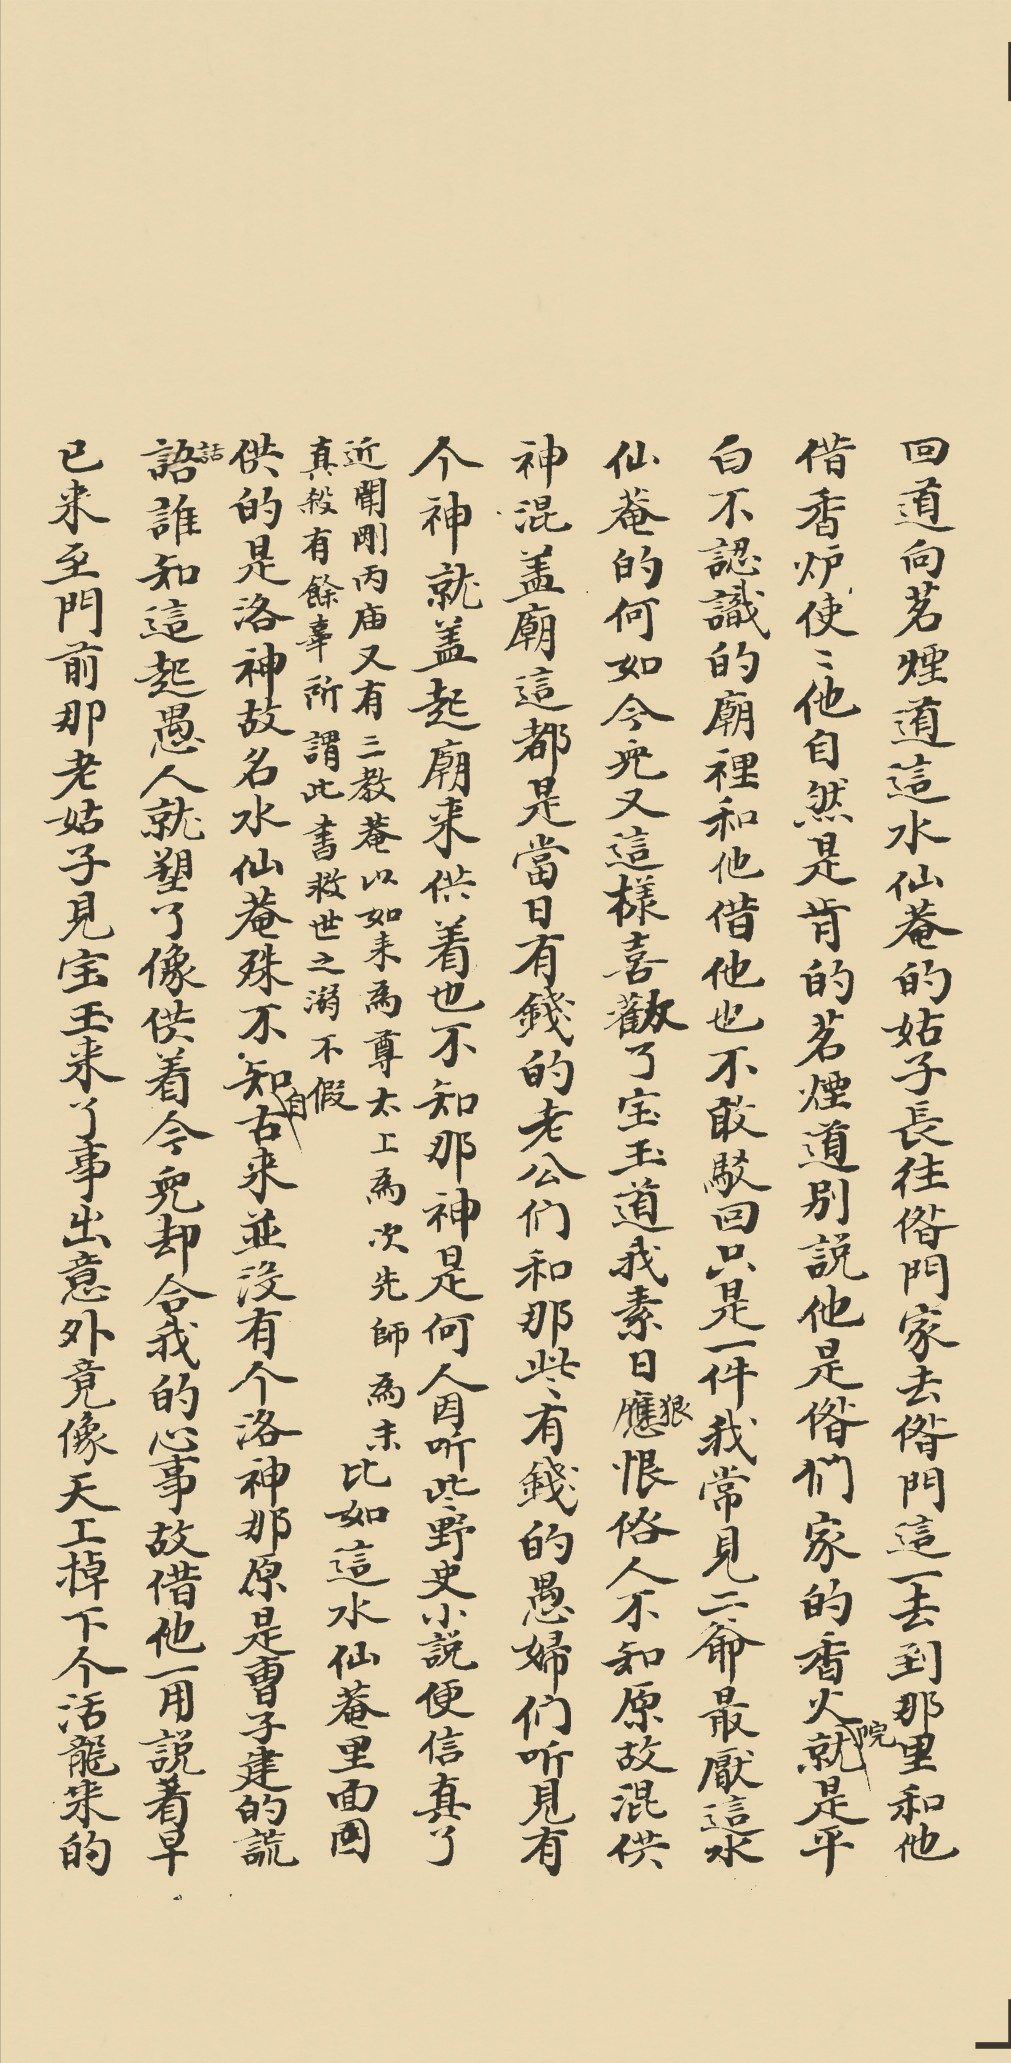 回道向茗煙道這水仙菴的姑子長往偺門家去偺門這一去到那里和他
借香炉使〻他自然是肯的茗煙道別説他是偺們家的香火院就是平
白不認識的廟裡和他借他也不敢駁回只是一件我常見二爺最厭這水
仙菴的何如今兒又這樣喜歡了宝玉道我素日應狠恨俗人不知原故混供
神混盖廟這都是當日有錢的老公们和那些有錢的愚婦们听見有
个神就盖起廟来供着也不知那神是何人因听些野史小説便信真了
近聞剛丙庙又有三教菴以如来為尊太上為次先師為末
真殺有餘辜所謂此書救世之溺不假
比如這水仙菴里面因
供的是洛神故名水仙菴殊不知自古来並没有个洛神那原是曹子建的謊
語話誰知這起愚人就塑了像供着今兒却合我的心事故借他一用説着早
已来至門前那老姑子見宝玉来了事出意外竟像天上掉下个活龍来的